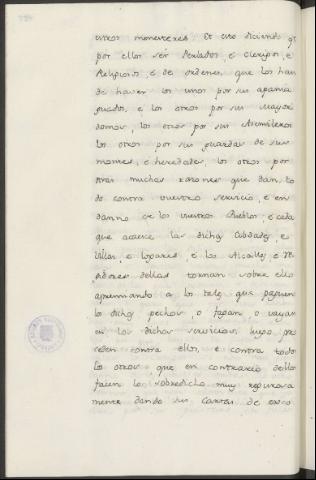 otros monesteres. Et esto diciendo q̃
por ellos ser Perlados, e clerigos, e
Religiosos, e de ordenes, que los han
de haver los unos por sus apania
guados, e los otros por sus mayor
domos, los otros por sus Acemileros
los otros por sus guardas de sus
montes, e heredades, los otros por
otras muchas razones que dan, to
do contra vuestro servicio, e en
danno de los vuestros Pueblos, e cada
que acaece las dichas Cibdades, e
villas, e logares, e los Alcalles, e
dellas tornan sobre ello
apremiando a los tales que paguen
los dichos pechos, o fagan, o vayan
en los dichos servicios, luego pro
ceden contra ellos, e contra todos
los otros que en contrario dello
facen lo sobredicho muy rigurosa
mente dando sus cartas de exco